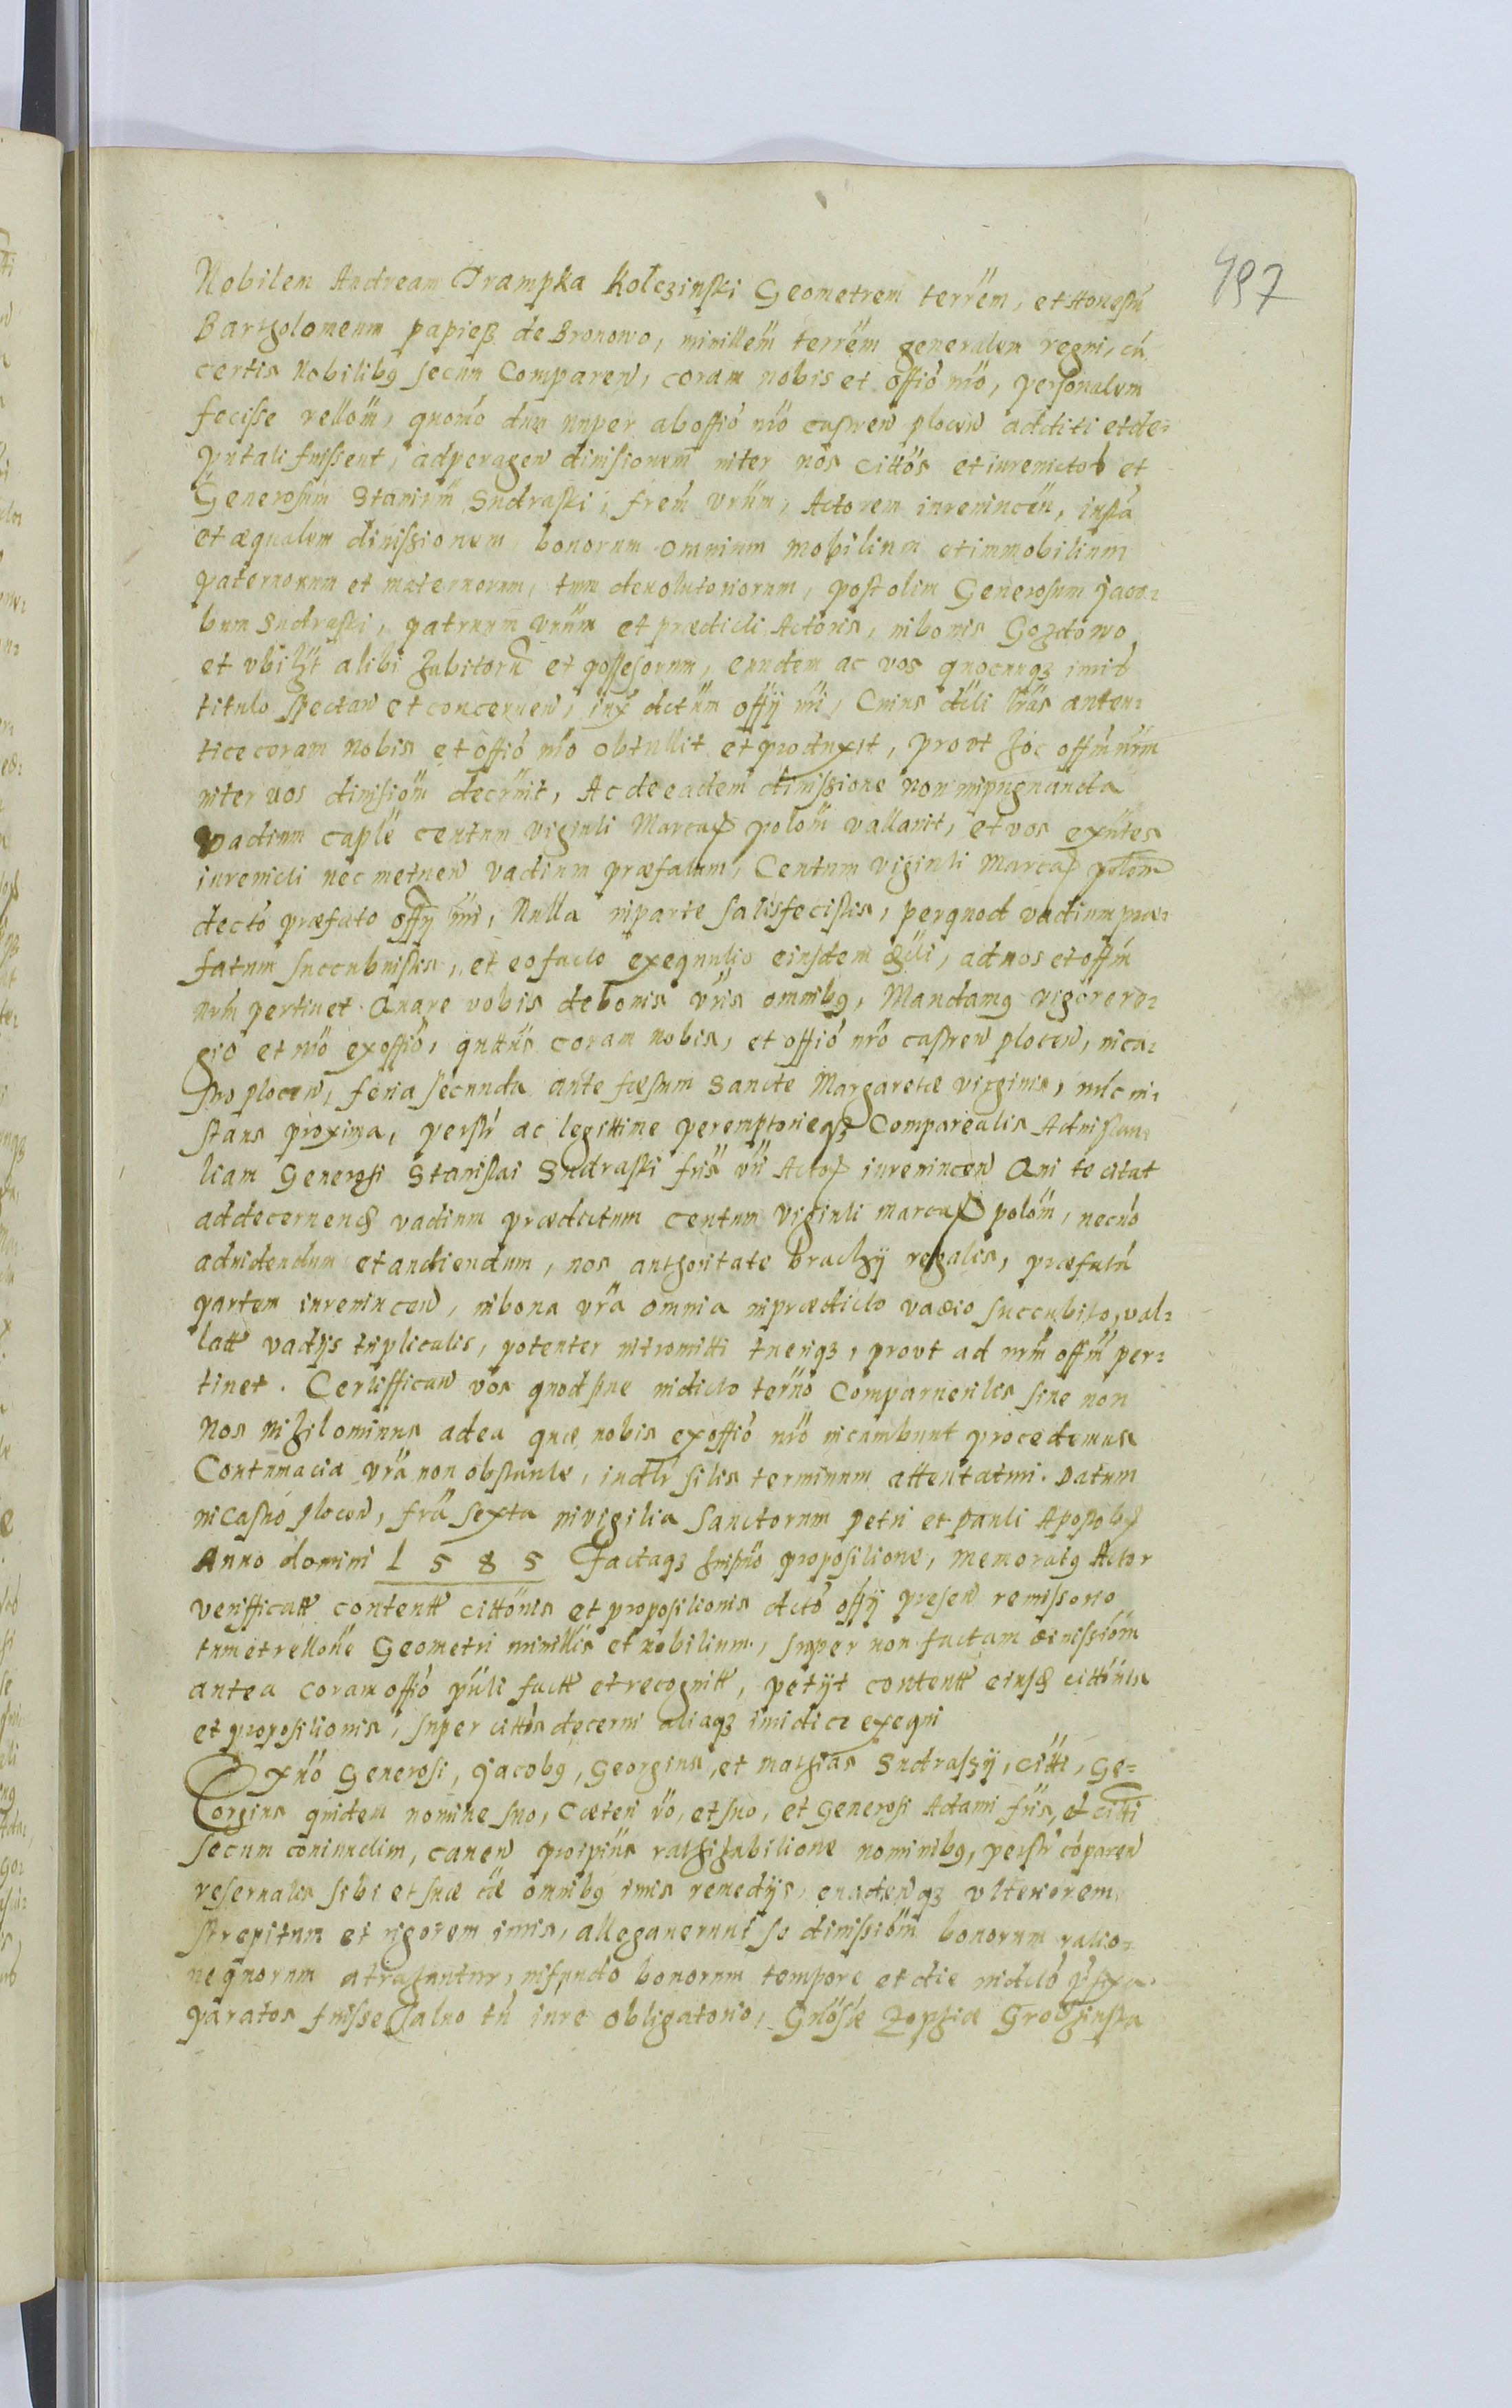 497
Nobilem Andream Trampka Kolczinski Geometrem terrem, et Honestū
Bartholomeum papieß de Bronowo, ministlem terrem generalem regni, cū
certis Nobilibq secum Comparen, coram nobis et offio nrō, personalem
fecisse rellom, quomo dum nuper ab offio nrō castren plocen additi et de=
putati fuissent, ad peragen divisionem inter vos cittos et iurevictos et
Generosum Stanism Sudraski, frem vrum, Actorem iurevincen, iustā
et æqualem divissionem bonorum omnium mobilium et immobilium
paternorum et maternorum, tum devolutoriorum, post olim Generosum Jaco=
bum Sudraski, patruum vrum et prædicti Actoris, in bonis Gozdowo
et vbilzt alibi habitoru et possesorum, eundem ac vos quocunqz iuris
titulo spectan et concernen, iux dctum offij nri, Cuius dcti lras auten=
tice coram nobis et offio nrō obtullit et produxit, provt hoc offm nrm
inter vos divisiom decrevit, Ac de eadem divissione non impugnanda
vadium caple centum viginti Marcar polom vallavit, et vos exntes
iurevicti nec metuen vadium præfatum, Centum viginti Marcar polom
decto præfato offij nri, Nulla in parte satisfecistis, per quod vadium præ=
fatum succubuistis, et eo facto exequutio eiusdem dcti, ad nos et offm
nrm pertinet. Quare vobis de bonis vris omnibq, Mandamq vigore re=
gio et nrō ex offio, quttus coram nobis, et offio nrō castren plocen, in ca=
stro plocen, feria secunda ante fæstum Sancte Margaretæ virginis, nuc in=
stans proxima, perstr ac legittime peremptorieqz Compareatis Ad instan=
tiam Generosi Stanislai Sudraski fris vri Actor iurevincen Qui te citat
ad decernend vadium prædictum centum viginti marcar polom, necno
ad videndum et audiendum, nos authoritate brachij regalis, præfatā
partem iurevincen, in bona vra omnia in prædicto vadio succubito, val=
latt vadijs triplicatis, potenter intromitti tueriqz, provt ad nrm offm per=
tinet. Certiffican vos quod sive in dicto termo Comparueritis sive non
Nos nihilominus ad ea quæ nobis ex offio nrō incumbunt procedemus
Contumacia vra non obstante, indtr silis terminum attentaturi. Datum
in Castro plocen, fra sexta in vigilia Sanctorum petri et pauli Apostolor
Anno domini 1 5 8 5 Factaqz hmo propositione, memoratq Actor
verifficatt contentt cittonis et propositionis dcto offij presen remissorio
tum et rellone Geometri ministlis et nobilium, super non factam divissiom
antea coram offio pnti factt et recognitt, petijt contentt eiusd cittonis
et propositionis, super cittis decerni aliaqz iuridice exequi
Exnō Generosi, Jacobq, Georgius, et Mathias Sudraszij, citti, Ge=
orgius quidem nomine suo, Cæteri vo, et suo, et Generosi Adami fris, et citti
secum coniunctim, caven proipius rathihabitione nominibq, perstr cōparen
reservatis sibi et suæ cæ omnibq iuris remedijs, evadenqz vlteriorem
strepitum et rigorem iuris, allegaverunt se divissiom bonorum ratio=
ne quorum atrahuntur, in fundo bonorum tempore et die in dcto pfixa
paratos fuisse Salvo tn iure obligatorio, Gnosæ Zophiæ Grodzinska